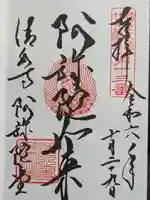 奉拝
令和六年
十月二十九日
阿弥陀如来
清水寺
阿弥陀堂